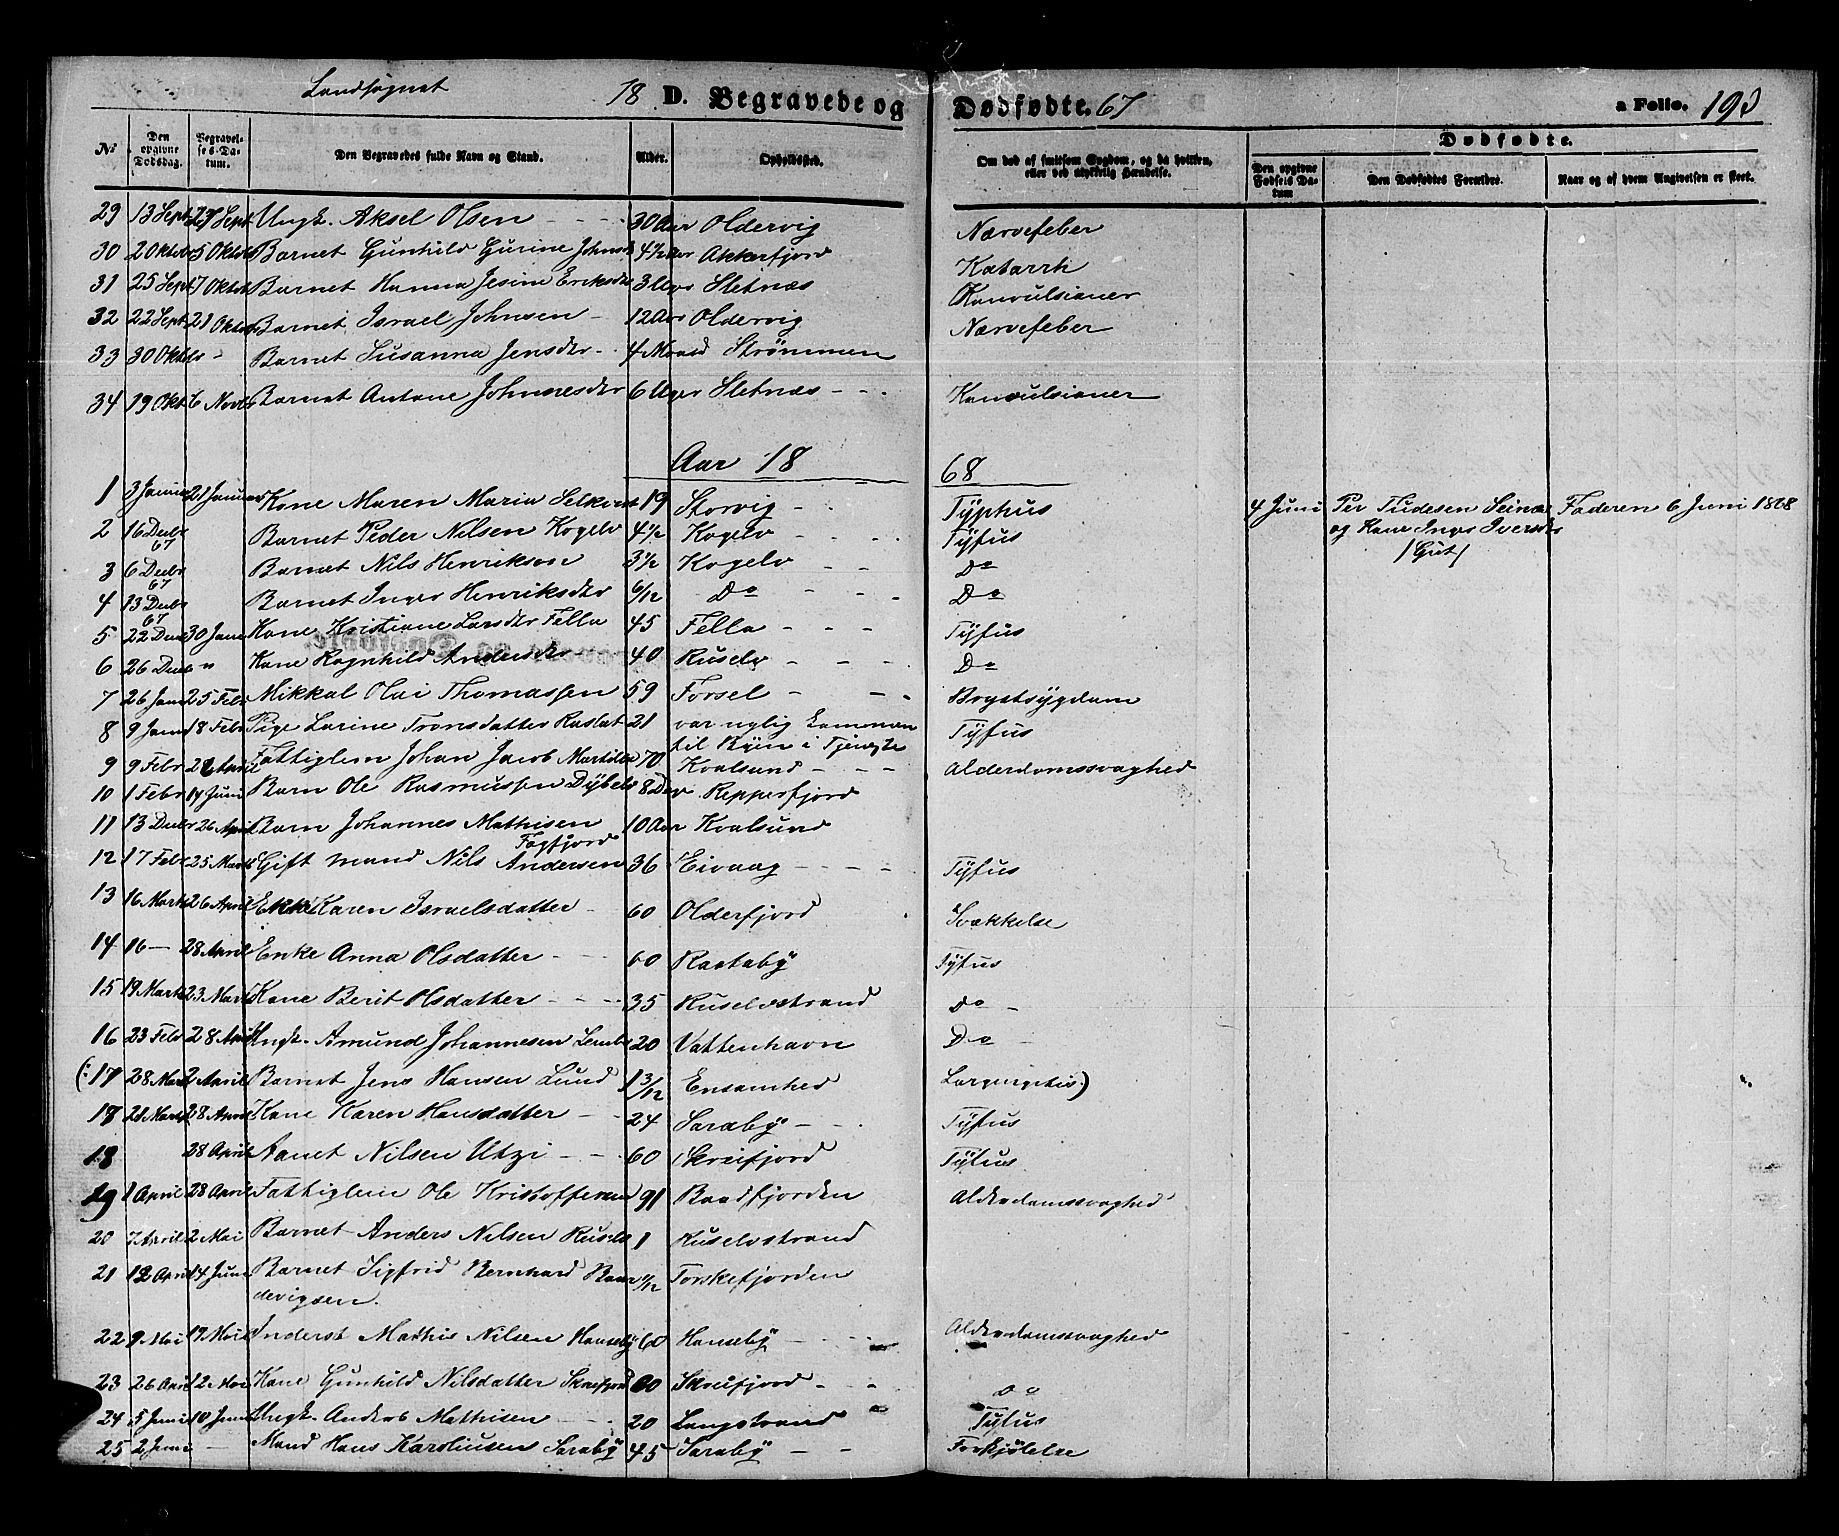 Landsognet 18 D. Begravede og Dødfødte. 67 a Folio. 193
Dødfødte.
No Den opgivne Dødsdag. Begravelses-Datum. Den Begravedes fulde Navn og Stand. Alder. Opholdssted. Om død af smitsom Sygdom, og da hvilken, eller ved ulykkelig Hændelse. Den opgivne Fødsels Datum Den Dødfødtes Forældre. Naar og af hvem Angivelsen er skeet.
29 13 Sept Sept Ungk. Aksel Olsen 30 Aar Oldervig Nervefeber
30 2 Oktbr 5 Oktbr Barnet Gunhild Gurine 4½ Aar Akkerfjord Katarrh
31 25 Sept 7 Oktbr Barnet Hanna Jesine Eriksdtr 3 Uger Sletnæs Konvulsioner
32 22 Sept 21 Oktbr Barnet Israel Johnsen 12 Aar Oldervig Nærvefeber
33 30 Oktbr " Barnet Susanna Jensdtr 4 Maaned Strømmen
34 19 Okt 6 Novbr Barnet Antone Johannesdtr 6 Uger Sletnæs Konvulsioner
Aar 18 68
1 3 Januar 21 Januar Kone Maren Maria 19 Storvig Typhus 4 Juni Per Tudesen Faderen 6 Juni 1868
og Kone Inger Iversdtr
2 16 Decbr 67 Barnet Peder Nilsen Kogelv 4½ Kogelv Tyfus
3 6 Decbr 67 Barnet Nils Henriksen 3½ Kogelv Do
4 13 Decbr 67 Barnet Inger Henriksdtr 6/12 Do Do
5 22 Decb 30 Janr Kone Kristiane Larsdtr Fella 45 Fella Tyfus
6 26 Decbr " Kone Ragnhild Andersdtr 40 Ruselv Do
7 26 Janr 25 Febr Mikkal Olai Thomassen 59 Forsøl Brystsygdom
8 9 Janr 18 Febr Pige Larine Tronsdatter 21 var nylig kommen Tyfus
til Byen i Tjeneste
9 9 Febr 28 April Fattiglem Johan Jacob 70 Kvalsund Alderdomssvaghed
10 1 Febr 14 Juni Barn Ole Rasmussen 8 Dage Repperfjord
11 13 Decbr 26 April Barn Johannes Mathisen 10 Aar Kvalsund
Fægfjord
12 17 Febr 25 Marts Gift mand Nils Andersen 36 Eivaag Tyfus
13 16 Marts 26 April Enke Karen Israelsdatter 60 Olderfjord Svækkelse
14 16 — 28 April Enke Anna Olsdatter 60 Rastaby Tyfus
15 19 Marts 23 Marts Kone Berit Olsdatter 35 Ruselvstrand Do
16 23 Febr 28 April Ungk. Amund Johannesen 20 Vattenhavn Do
(: 17 28 Mar 2 April Barnet Jens Hansen Lund 1 3/12 Ensomhed )
17 28 April Kone Karen Hansdatter 24 Saraby Tyfus
18 28 April Nilsen Utzi 60 Skreifjord Tyfus
19 1 April 28 April Fattiglem Ole Kristoffersen 91 Baadfjorden Alderdomssvaghed
20 7 April 2 Mai Barnet Anders Nilsen Ruselv 1 Ruselvstrand
21 12 April 14 Juni Barnet Sigfrid Bernhard Torskefjorden
22 9 Mai 19 Mai Inderst Mathis Nilsen Hønseby 60 Hønseby Alderdomssvaghed
23 26 April 12 Mai Kone Gunhild Nilsdatter Skreifjord 60 Skreifjord Do
24 5 Juni 10 Juni Ungk. Anders Mathisen 20 Langstrand Tyfus
25 2 Juni — Mand Hans Karoliusen Saraby 45 Saraby Forkjølelse